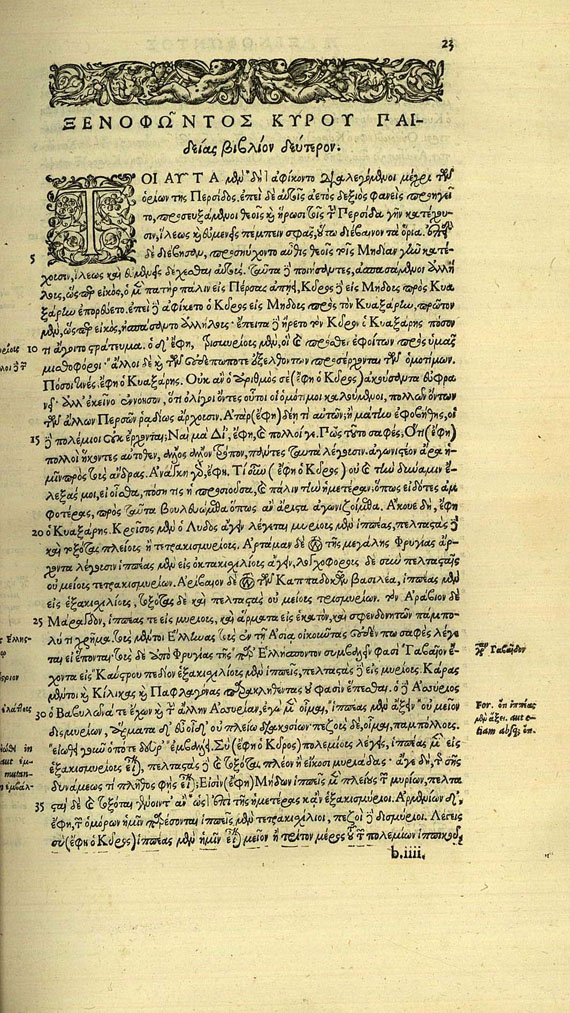 23
ΞΕΝΟΦΩ͂ΝΤΟΣ ΚΥΡΟΥ ΠΑΙ-
δείας βιβλίον δεύτερον.
ΤΟΙΑΥΤΑ μὲν δὴ ἀφίκοντο διαλεγόμενοι μέχρι τῶν
ὁρίων της Περσίδος. ἐπεὶ δὲ αὐτοῖς ἀετὸς δεξιὸς φανεὶς προηγεῖ
το, προσευξάμενοι θεοῖς κỳ ἥρωσι τοῖς τ̃ Περσίδα γῆν κατέχου-
σιν, ἵλεως κỳ εὐμενεῖς πέμπειν σφᾶς, οὕτω διέβαινον τὰ ὅρια. ἐπεὶ
5 δὲ διέβησαν, προσηύχοντο αὖθις θεοῖς τοῖς Μηδίαν γῆν κατέ-
χουσιν, ἵλεως καὶ εὐμενεῖς δέχεσθαι αὐτούς. ταῦτα δ̓ ποιήσαντες, ἀσπασάμενοι ἀλλή
λους, ὥσπερ εἰκὸς, ὁ μ̀ πατὴρ πάλιν εἰς Πέρσας ἀπῄει, Κῦρος δ̓ εἰς Μήδους πρὸς Κυα
ξάρην ἐπορεύετο. ἐπεὶ δ̓ ἀφίκετο ὁ Κῦρος εἰς Μήδους πρὸς τὸν Κυαξάρην, πρῶτον
μὲν, ὥσπερ εἰκὸς, ἠσπάσαντο ἀλλήλους· ἔπειτα δ̓ ἤρετο τὸν Κῦρον ὁ Κυαξάρης πόσον
10 τι ἄγοιτο στράτευμα. ὁ δ', ἔφη, τρισμυρίους μὲν, οἳ ϗ πρόσθεν ἐφοίτων πρὸς ὑμᾶς
μισθοφόροι· ἄλλοι δὲ κỳ τῶν οὐδεπώποτε ἐξελθόντων προσέρχονται τῶν ὁμοτίμων.
Πόσοι τινές; ἔφη ὁ Κυαξάρης. Οὐκ ἂν ὁ ἀριθμός σε (ἔφη ὁ Κῦρος) ἀκούσαντα εὐφρά
νειε· ἀλλ' ἐκεῖνο ἐννόησον, ὅτι ὀλίγοι ὄντες οὗτοι οἱ ὁμότιμοι καλούμενοι, πολλῶν ὄντων
τῶν ἄλλων Περσῶν ῥᾳδίως ἄρχουσιν. Ἀτὰρ (ἔφη) δέη τι αὐτῶν, ἢ μάτην ἐφοβήθης, οἱ
15 δ̓ πολέμιοι οὐκ ἔρχονται; Ναὶ μὰ Δί', ἔφη, ϗ πολλοί γε. Πῶς τοῦτο σαφές; Ὅτι (ἔφη)
πολλοὶ ἥκοντες αὐτόθεν, ἄλλος ἄλλον τρόπον, πάντες ταὐτὰ λέγουσιν. ἀγωνιστέον ἄρα ἡ-
μῖν πρὸς τοὺς ἄνδρας. Ἀνάγκη γὰρ, ἔφη. Τί οὖν (ἔφη ὁ Κῦρος) οὐ ϗ τὴν δύναμιν ἔ-
λεξάς μοι, εἰ οἶσθα, πόση τις ἡ προσιοῦσα, ϗ πάλιν τὴν ἡμετέραν. ὅπως εἰδότες ἀμ
φοτέρας, πρὸς ταῦτα βουλευώμεθα ὅπως ἂν ἄριστα ἀγωνιζοίμεθα. Ἄκουε δὴ, ἔφη
20 ὁ Κυαξάρης. Κροῖσος μὲν ὁ Λυδὸς ἄγειν λέγεται μυρίους μὲν ἱππέας, πελταστὰς δ̓
καὶ τοξότας πλείους ἢ τετρακισμυρίους. Ἀρτάμαν δὲ τὸν τῆς μεγάλης Φρυγίας ἄρ-
χοντα λέγουσιν ἱππέας μὲν εἰς ὀκτακισχιλίους ἄγειν, λογχοφόρους δὲ σὺν πελτασταῖς
οὐ μείους τετρακισμυρίων. Ἀρίβαιον δὲ τὸν τῶν Καππαδοκῶν βασιλέα, ἱππέας μὲν
εἰς ἑξακισχιλίους, τοξότας δὲ καὶ πελταστὰς οὐ μείους τρισμυρίων. τὸν Ἀράβιον δὲ
25 Μάραγδον, ἱππέας τε εἰς μυρίους, καὶ ἅρματα εἰς ἑκατὸν, καὶ σφενδονητῶν πάμπο-
λύ τι χρῆμα. τοὺς μέντοι Ἕλληνας τοὺς ἐν τῇ Ἀσίᾳ οἰκοῦντας οὐδέν πω σαφὲς λέγε
ται εἰ ἕπονται. τοὺς δὲ ἀπὸ Φρυγίας τῆς πρὸς Ἑλλήσποντον συμβαλεῖν φασὶ Γάβαιον ἔ-
χοντα εἰς Καΰστρου πεδίον ἑξακισχιλίους μὲν ἱππεῖς, πελταστὰς δ̓ εἰς μυρίους. Κᾶρας
μέντοι κỳ Κίλικας κỳ Παφλαγόνας παρακληθέντας οὔ φασιν ἕπεσθαι. ὁ δ̓ Ἀσσύριος
30 ὁ Βαβυλῶνά τε ἔχων κỳ τ̀ ἄλλην Ἀσσυρίαν, ἐγὼ μ̀ οἶμαι, ἱππέας μὲν ἄξειν οὐ μεῖον
δισμυρίων, ἅρματα δ' εὖ οἶδ' οὐ πλείω διακοσίων· πεζοὺς δὲ, οἶμαι, παμπόλλους.
εἰώθει γοῦν ὁπότε δεῦρ' ἐμβάλλοι. Σὺ (ἔφη ὁ Κῦρος) πολεμίους λέγεις, ἱππέας μ̀ εἰς
ἑξακισμυρίους εἶναι, πελταστὰς δ̓ ϗ τοξότας πλέον ἢ εἴκοσι μυριάδας· ἄγε δὴ, τ̃ σῆς
δυνάμεως τί πλῆθος φῂς εἶναι; Εἰσὶν (ἔφη) Μήδων ἱππεῖς μ̀ πλείους τ̃ μυρίων, πελτα
35 σταὶ δὲ ϗ τοξόται γένοιντ' ἂν ὡς ἐπὶ τῆς ἡμετέρας κἂν ἑξακισμύριοι. Ἀρμενίων δ',
ἔφη, τ̃ ὁμόρων ἡμῖν παρέσονται ἱππεῖς μὲν τετρακισχίλιοι, πεζοὶ δ̓ δισμύριοι. Λέγεις
σὺ (ἔφη ὁ Κῦρος) ἱππέας μὲν ἡμῖν εἶναι μεῖον ἢ τρίτον μέρος τοῦ τ̃ πολεμίων ἱππικοῦ,
b.iiii.
Γάβαιδον
For. ὅτι ἱππέας
μὲν ἄξει. aut e-
tiam absque ὅτι.